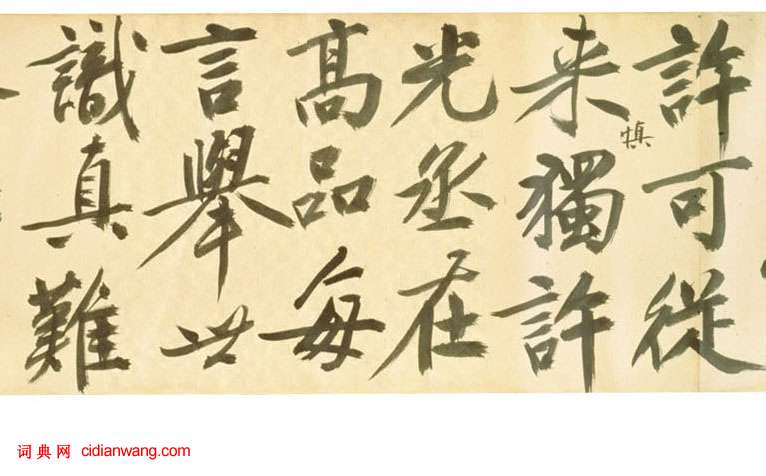 許可從
慎
来獨許
光丞在
高品每
言舉世
識真難
词典网 cidianwang.com